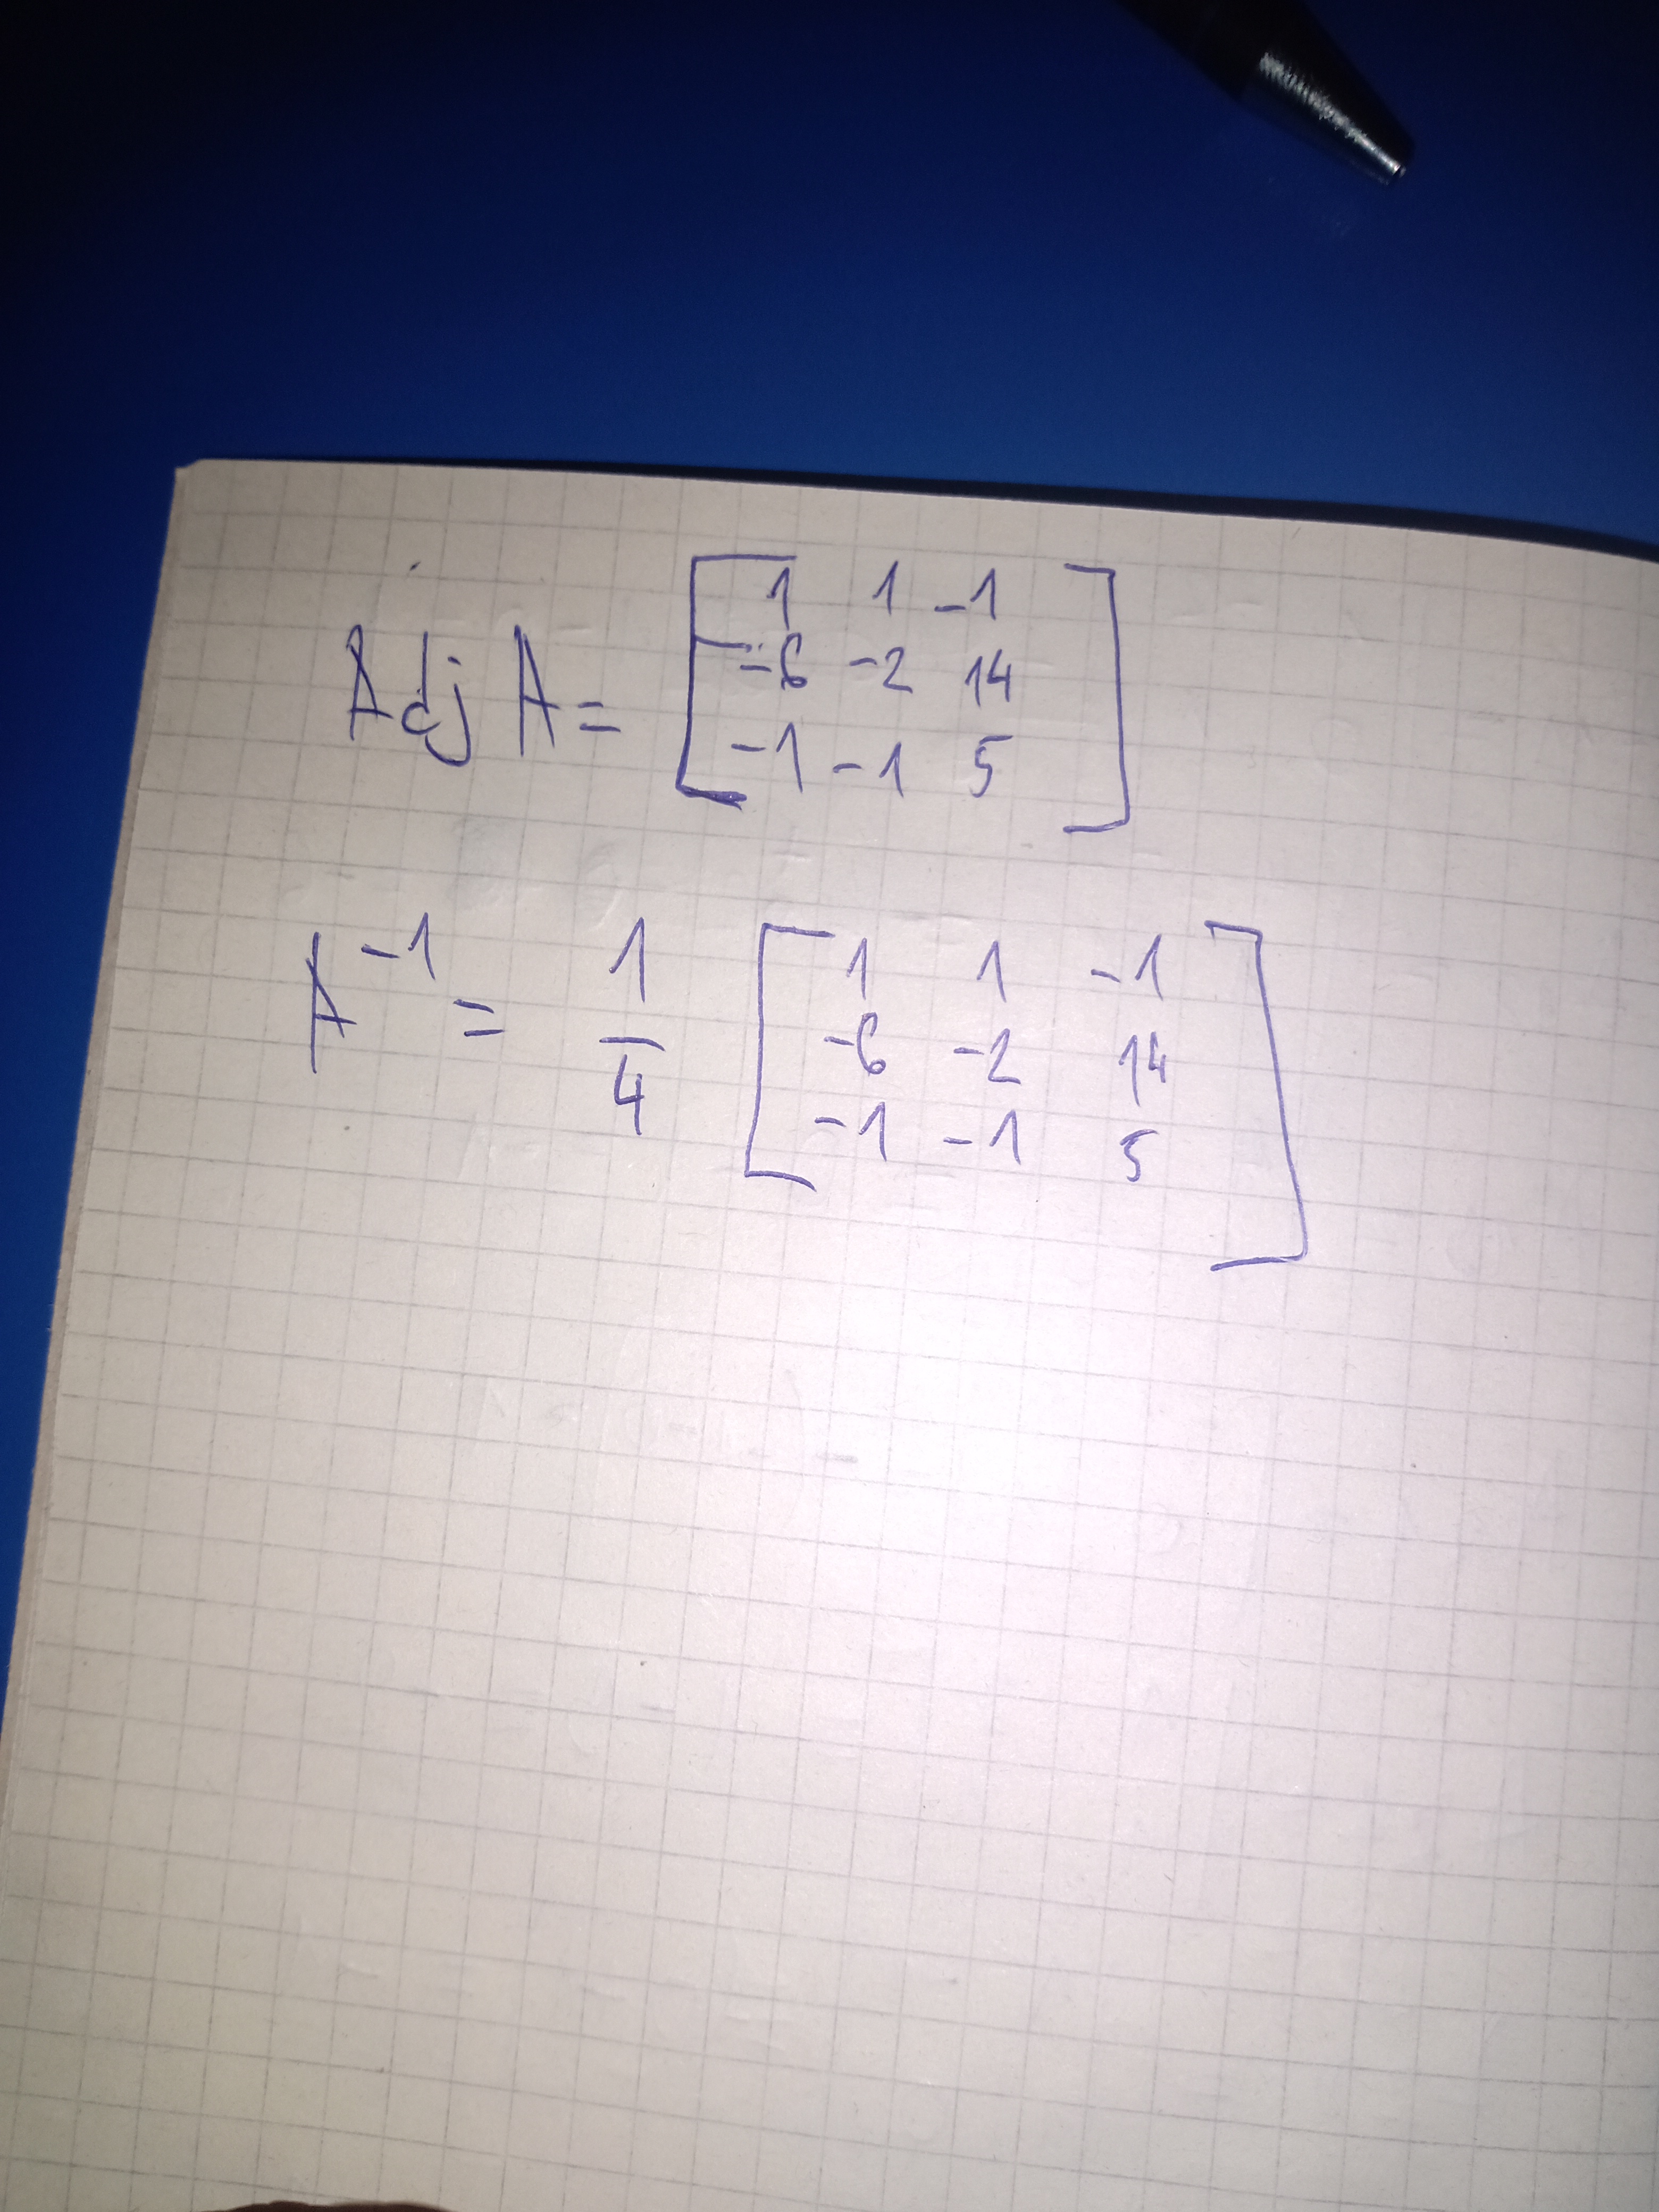 Adj A = [ 1 1 -1
-6 -2 14
-1 -1 5 ]
A^-1 = 1/4 [ 1 1 -1
-6 -2 14
-1 -1 5 ]